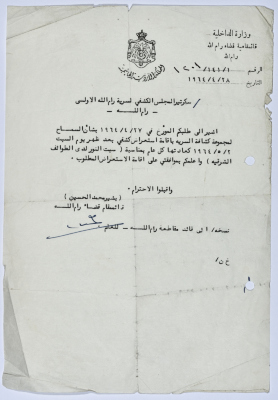 وزارة الداخلية
قائمقامية قضاء رام الله
رام الله
الرقم ١٤٤/١/
التاريخ ١٩٦٤/٤/٢٨
سكرتير المجلس الكشفي لسرية رام الله الاولى
- رام الله -
اشير الى طلبكم المؤرخ في ١٩٦٤/٤/٢٧ بشأن السماح
لمجموعة كشافة السرية باقامة استعراض كشفي بعد ظهر يوم السبت
١٩٦٤/٥/٢ كعادتها كل عام بمناسبة ( سبت النور لدى الطوائف
الشرقيه ) واعلمكم بموافقتي على اقامة الاستعراض المطلوب .
واقبلوا الاحترام ،
( بشير محمد الحسين )
قائمقام قضاء رام الله
نسخه / الى قائد مقاطعة رام الله - للعلم
ع ن /